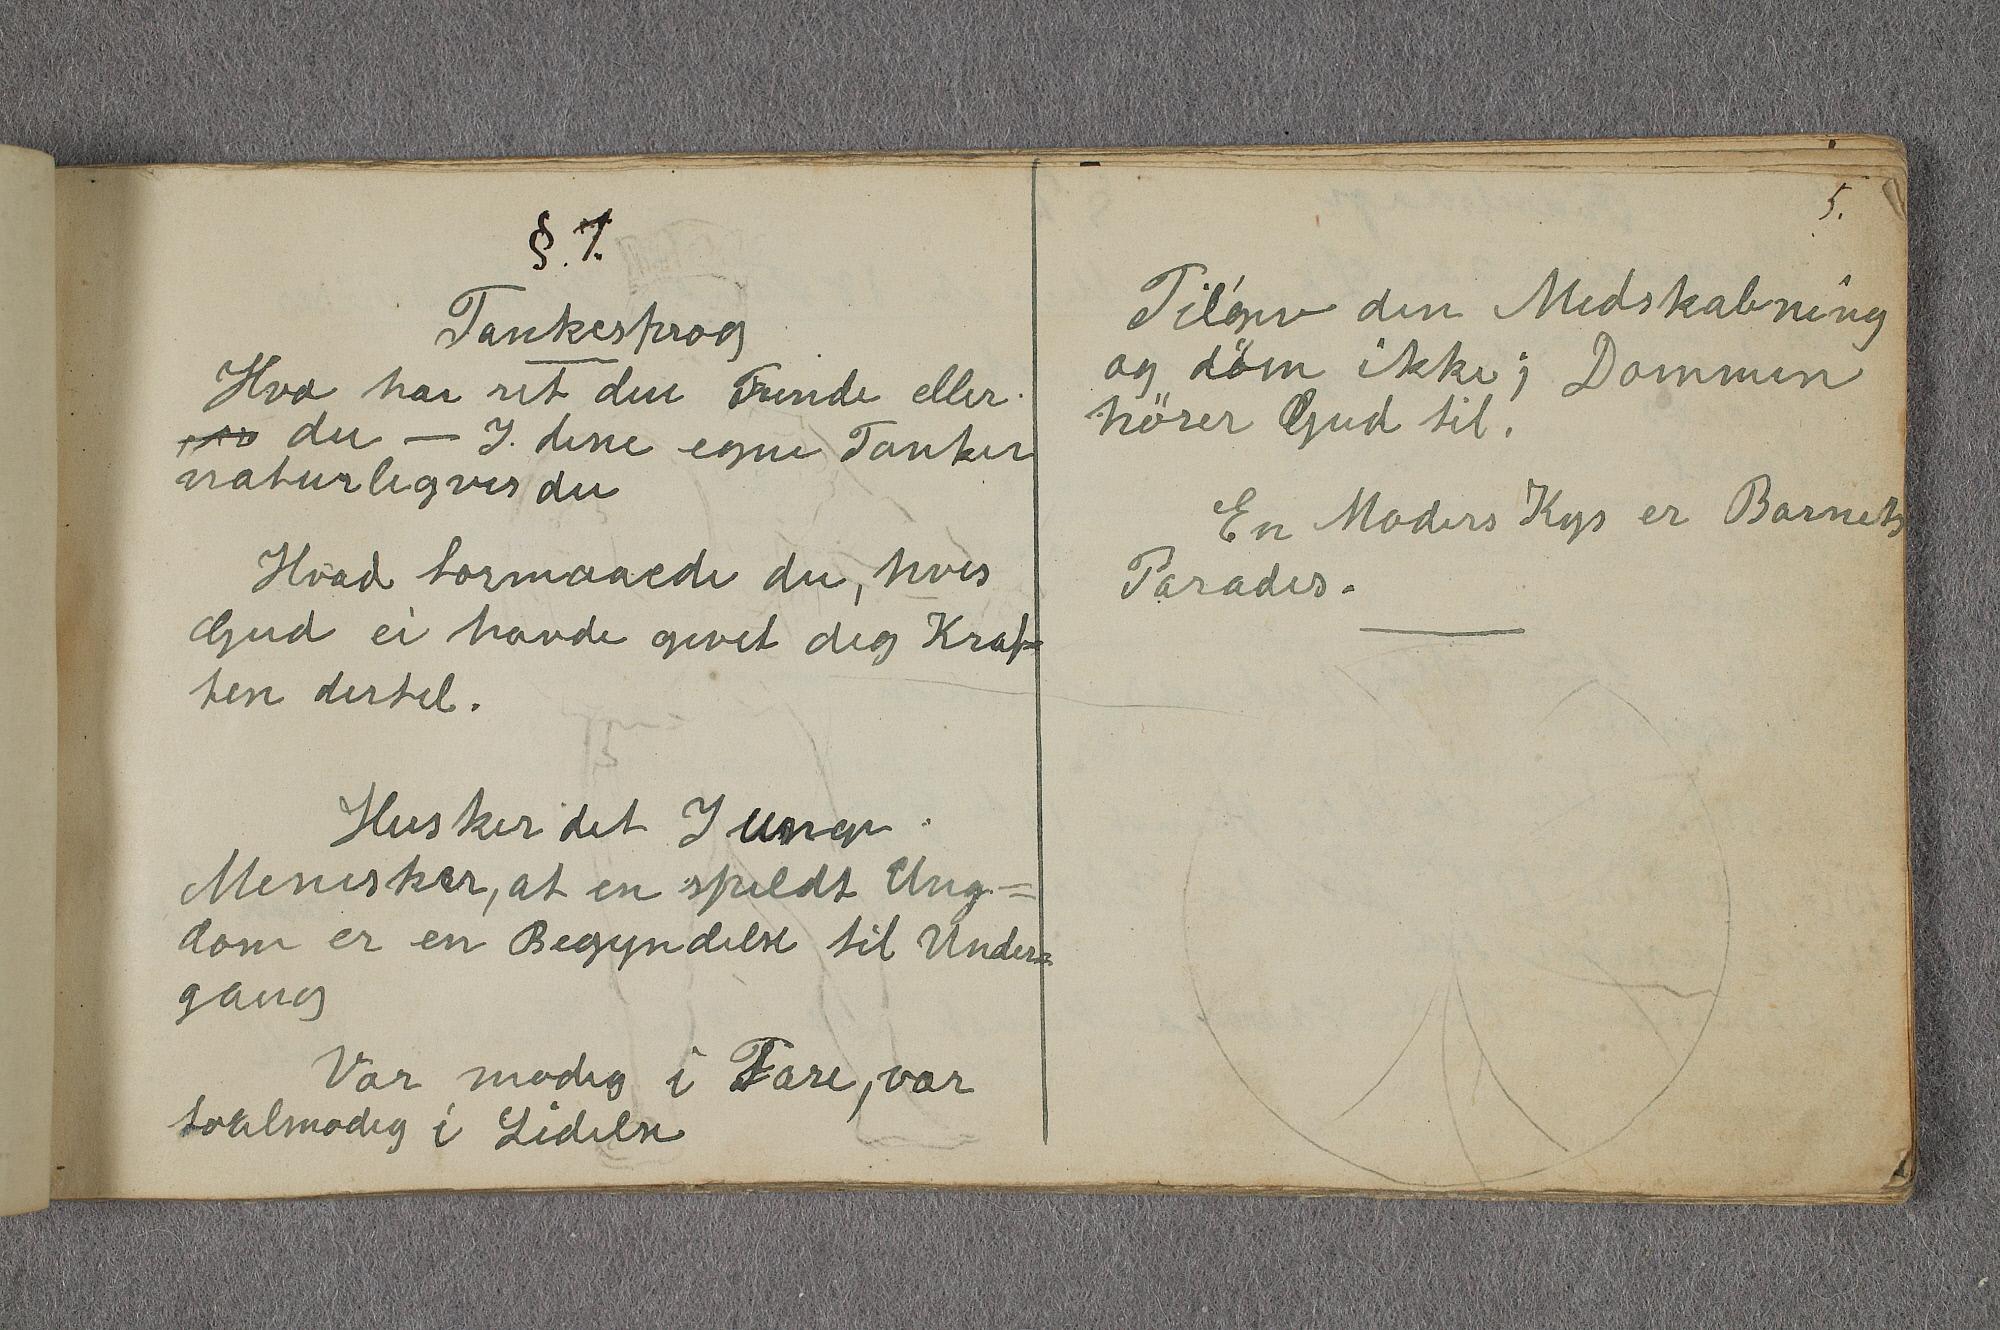 §. 7.
Tankesprog
Hvo har ret din Frende eller
du — I. dine egne Tanker
naturligvis du
Hvad formaaede du, hvis
Gud ei havde givet dig Kraf=
ten dertil.
Husker det I unge
Menisker, at en spildt Ung=
dom er en Begyndelse til Under=
gang
Vær modig i Fare, vær
taalmodig i Lidelse
5.
Tilgiv din Medskabning
og döm ikke; Dommen
hörer Gud til.
En Moders Kys er Barnets
Paradis.